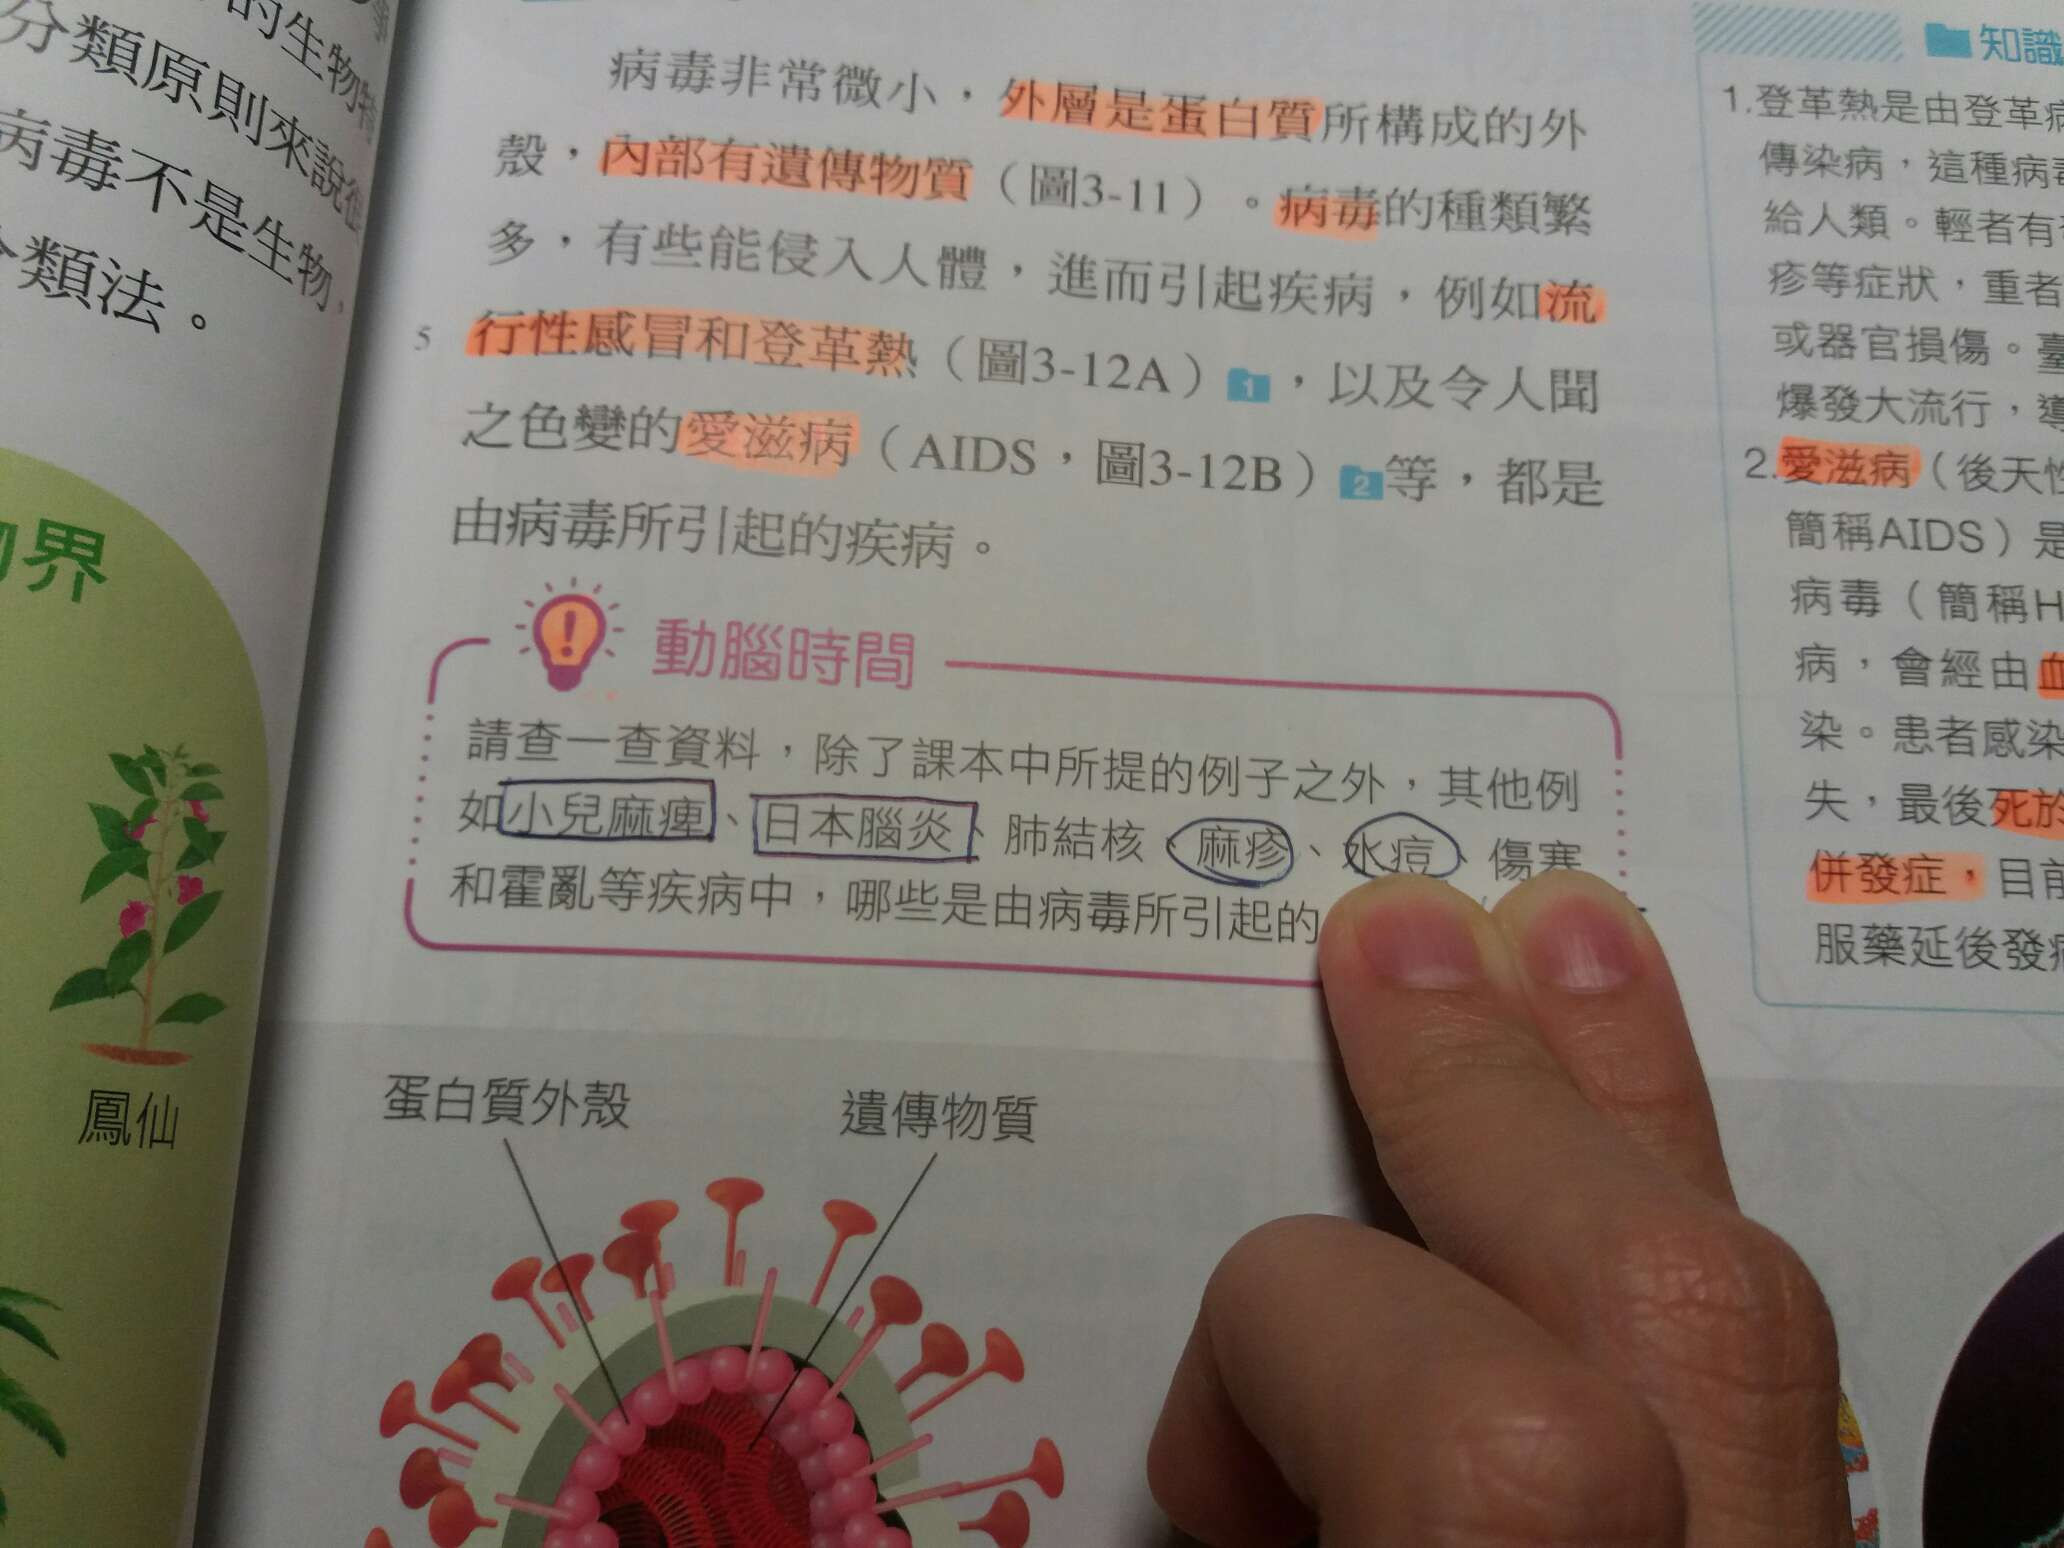 的生物特
分類原則來說
病毒不是生物，
分類法。
物界
鳳仙
病毒非常微小，外層是蛋白質所構成的外
殼，內部有遺傳物質（圖3-11）。病毒的種類繁
多，有些能侵入人體，進而引起疾病，例如流
5
行性感冒和登革熱（圖3-12A）1，以及令人聞
之色變的愛滋病（AIDS，圖3-12B）2等，都是
由病毒所引起的疾病。
動腦時間
請查一查資料，除了課本中所提的例子之外，其他例
如小兒麻痺、日本腦炎、肺結核、麻疹、水痘、傷寒
和霍亂等疾病中，哪些是由病毒所引起的
蛋白質外殼
遺傳物質
知識
1.登革熱是由登革病
傳染病，這種病毒
給人類。輕者有
疹等症狀，重者
或器官損傷。臺
爆發大流行，導
2.愛滋病（後天性
簡稱AIDS）是
病毒（簡稱H
病，會經由血
染。患者感染
失，最後死於
併發症，目前
服藥延後發病